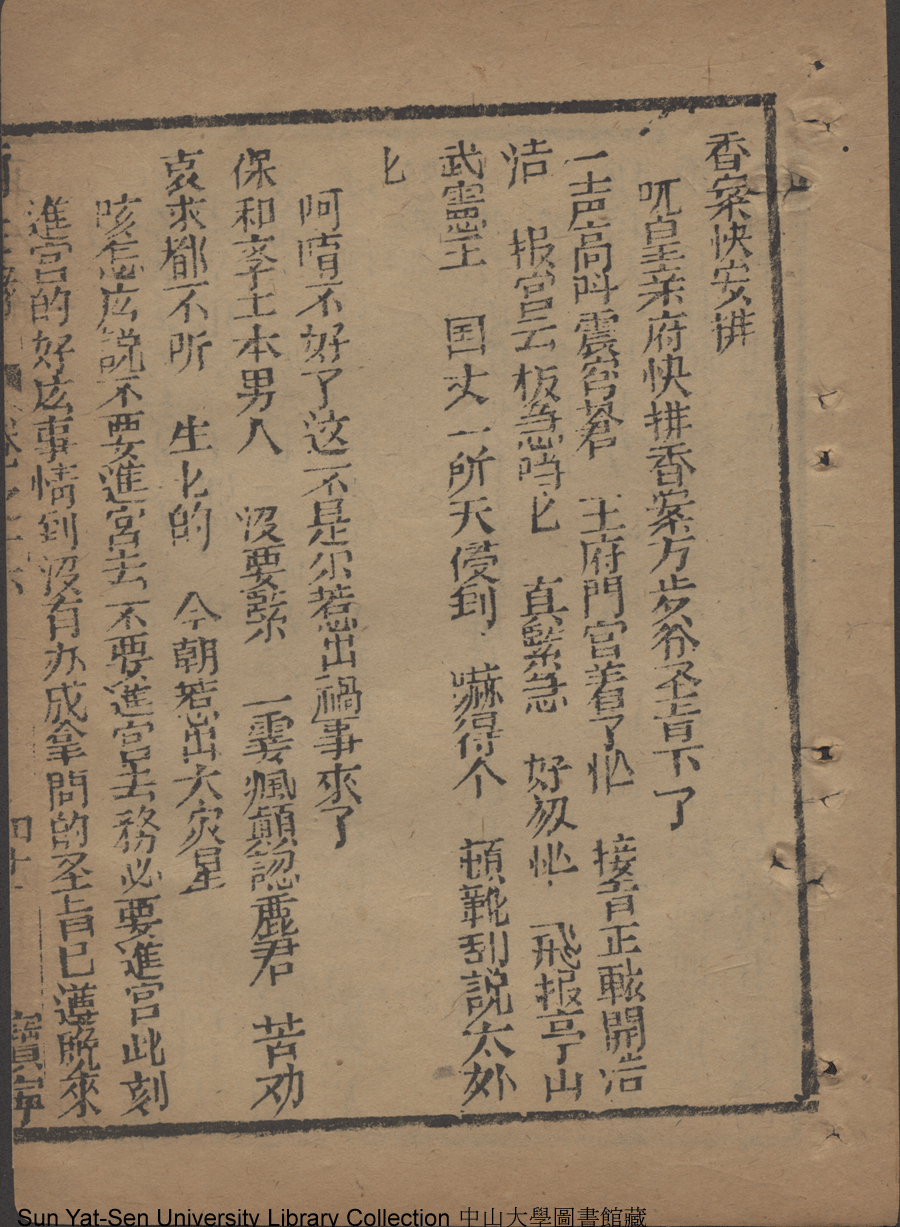 香案快安排
呪皇亲府快排香案方步爷圣旨下了
一声高呌震穹蒼 王府門官着了忙 接旨正𨋢開浩
洁 报宫云板急鸣匕 真緊急 好忽忙 飛报亭山
武憲王 国丈一听天侵到 嚇得个 頓靴刮説太妙
匕
阿唷不好了这不是尔惹出禍事來了
保和孝士本男人 没要𦂳 一雲瘋顛認鹿君 苦劝
哀求都不听 生匕的 今朝惹出大灾星
咳怎広説不要進宮去不要進宮去務必要進宮此刻
進宮的好広事情到没有办成拿問的圣旨已遵晩來
卷之十六
四十
寶寧
Sun Yat-Sen University Library Collection 中山大學圖書館藏